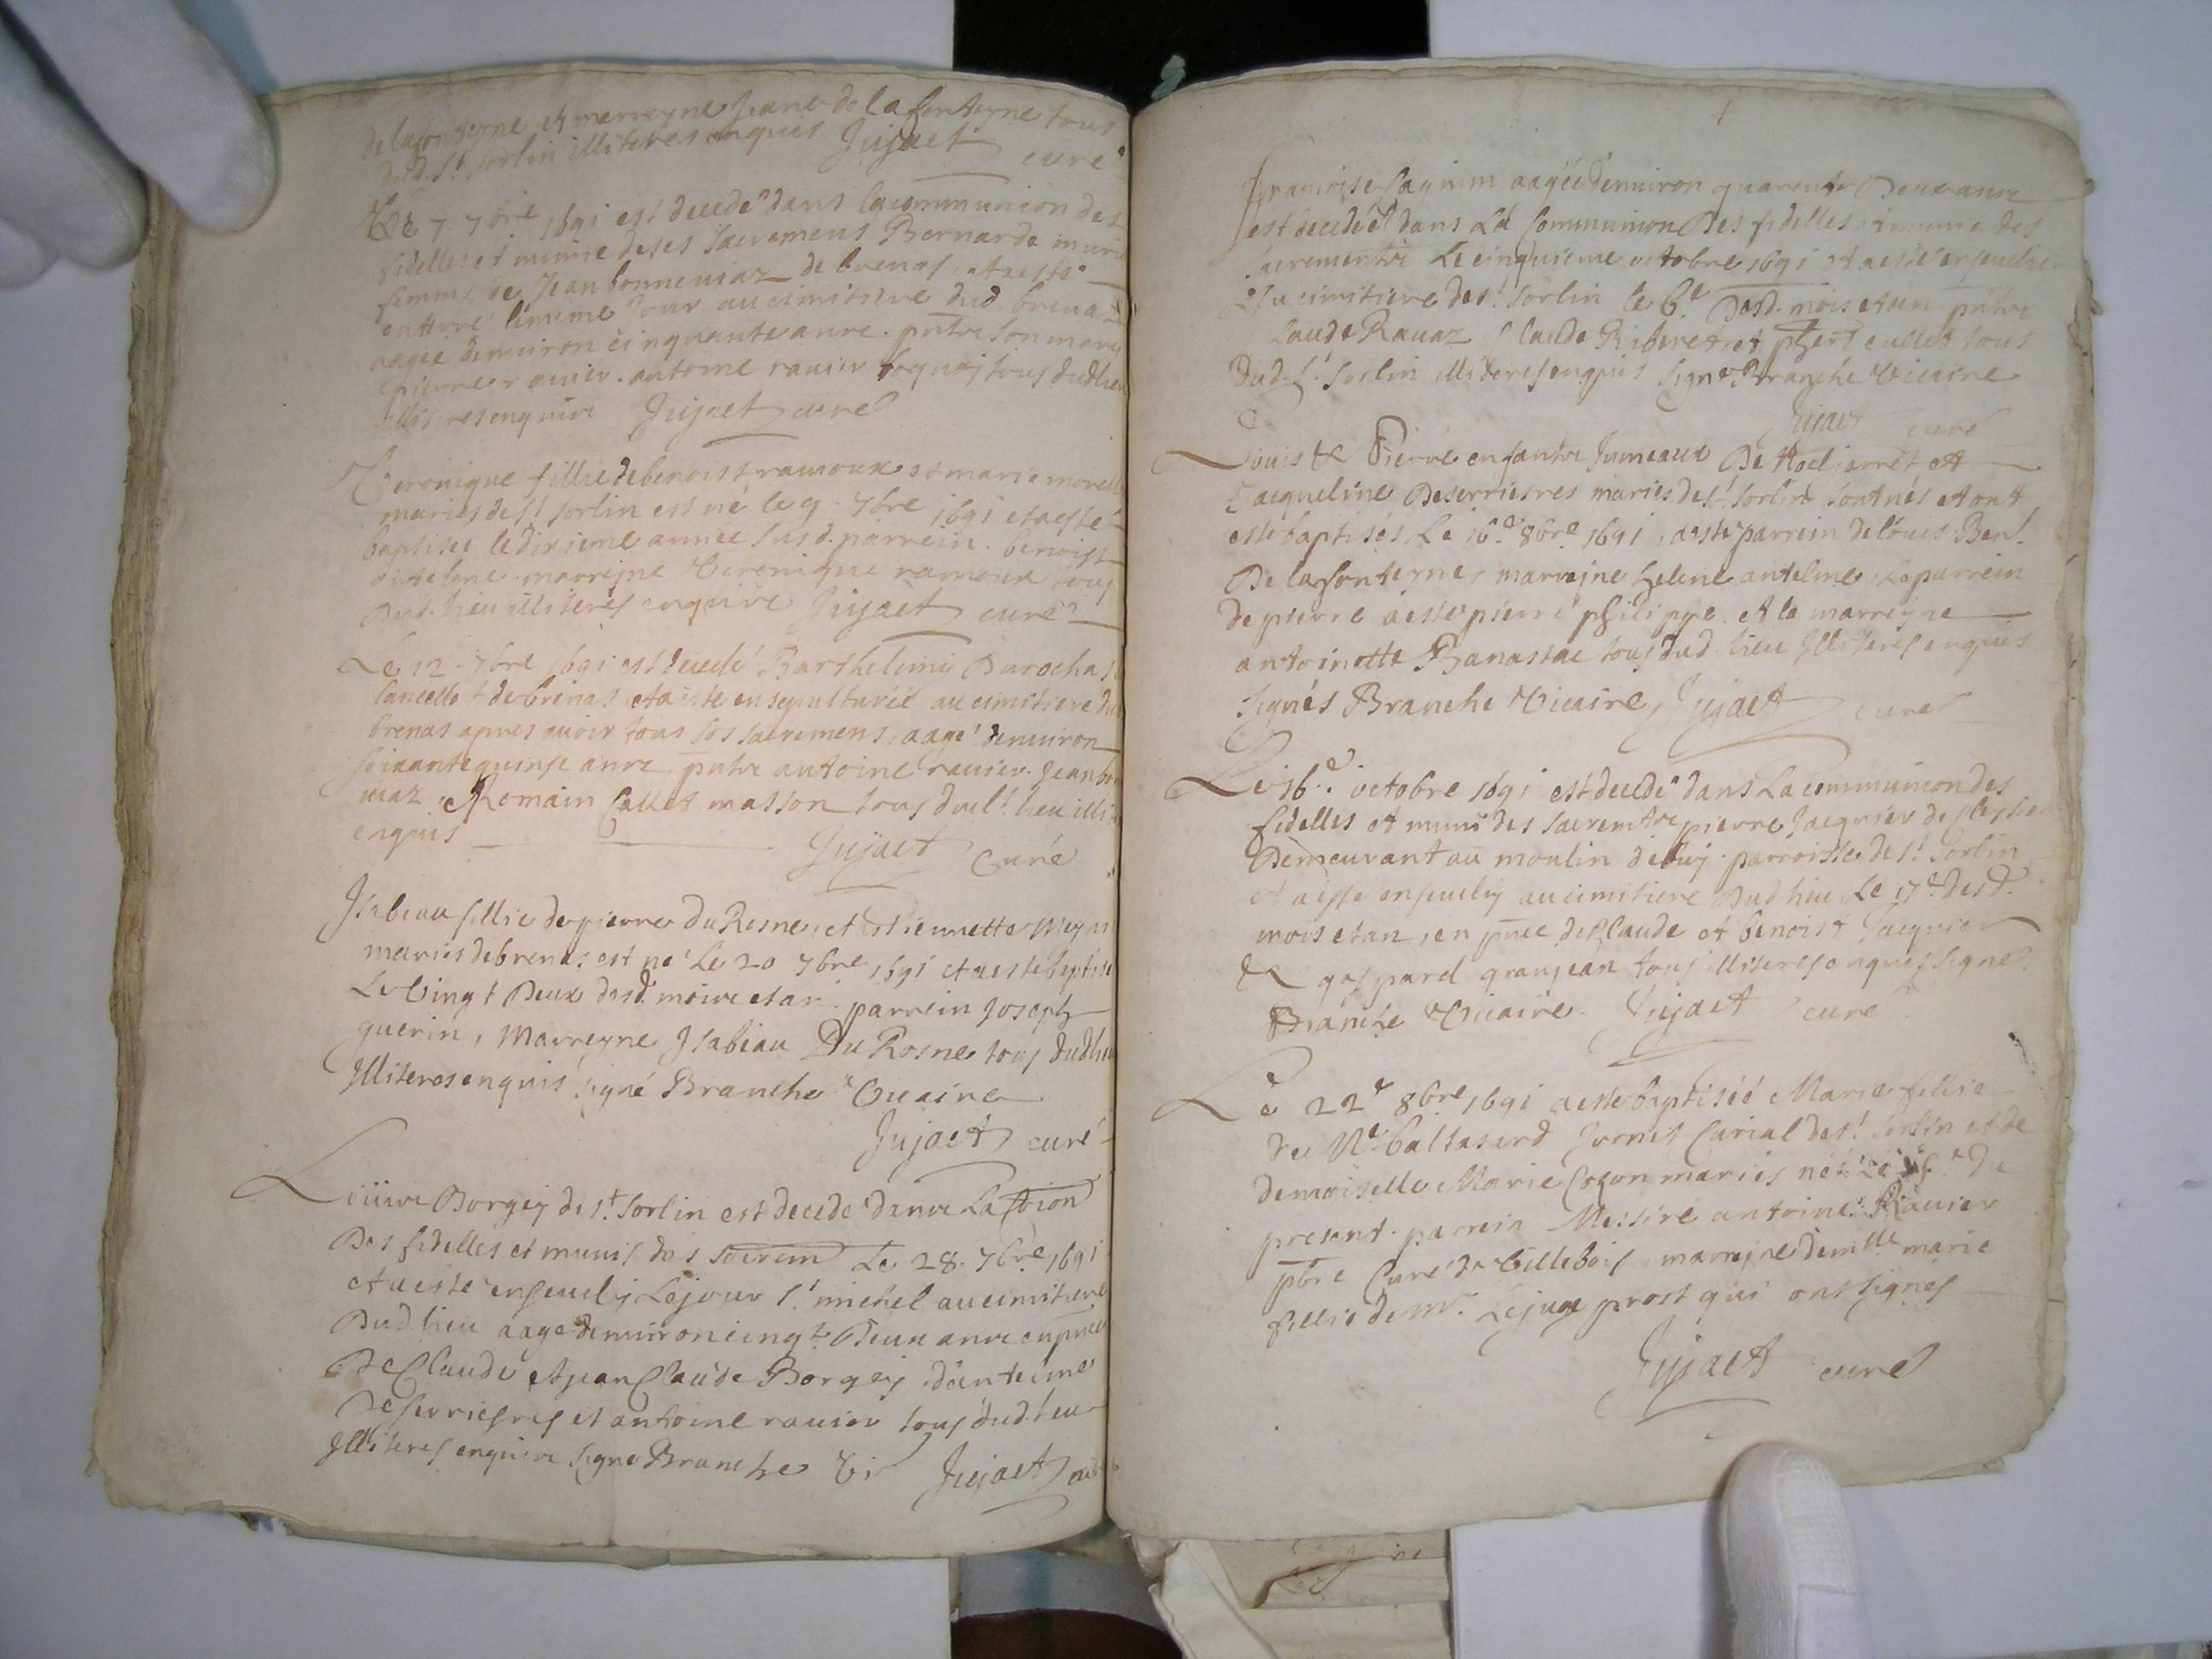 delafonteyne et marreyne Jeane de la fonteyne tous
dud. St sorlin illiteres enquis Jujaet curé
Le 7 7bre 1691 est decedé dans la communion des
fidelles et munie de ses sacremens Bernarde
femme de Jean bonnemaz de brenas, et a esté
enterré le meme Jour au cimitiere dud. brenaz
aagée denuiron cinquante anre. pntre son mary
pierre rauier. antoine rauier tous dud lieu
illiteres enquire Jujaet curé
Veronique fillie de benoist ramoux et marie morel
mariés de St sorlin est né le 9. 7bre 1691 et a esté
baptisee le dixieme annee susd. parrein. benoist
antelme. marreyne Veronique ramoux tous
dud. lieu illiteres enquire Jujaet curé
Le 12. 7bre 1691 est decedé Barthelemy Durochas
lancello t de brenas et a esté ensepulturéé au cimitiere du
brenas apres auoir tous ses sacremens, aagé denuiron
soixante quinse anre pntre antoine rauier. Jean bon
maz. Romain Callet masson tous dud. lieu illi
enquis Jujaet Curé
Isabeau fillie de pierre Du Rosne, et Estiennette
mariés de brenas est né Le 20 7bre 1691 et a esté baptisé
Le Vingt Deux desd. moire et an. parrein Joseph
guerin, Marreyne Isabeau Du Rosne tous dud lieu
Illiteres enquis signé Branche Vicaire
Jujaet curé
Borgey de St. sorlin est decedé danre La
Des fidelles et munis des sacrem Le 28. 7bre 1691
et a esté enseuely Le jour St. michel au cimitiere
Dud. lieu aagé denuiron cinqte. Deux anre en pnce
De Claude et Jean Claude Borgey. dantelme
Deserriesres et antoine rauier tous dud. lieu
Illiteres enquire signé Branche Vi Jujaet cu
francoise aagéé denuiron quarente Deux anre
est decedéé dans La Communion Des fidelles et munie des
sacrementre Le cinquieme octobre 1691 et a esté enseuelie
Au cimitiere de St. sorlin le 6e. Desd. mois et an pntre
Claude Rauaz Claude Riberet, et callet tous
Dud. St. sorlin illiteres enquis signé Branche Vicaire
Jujaet curé
Louis & Pierre enfantre Jumeaux De et
Jacqueline Deserriesres mariés de St. sorlin sont nés et ont
esté baptisés Le 16e. 8bre 1691, a esté parrein de louis Ben.
De lafonteyne, marreyne helene antelme, Le parrein
de pierre a esté pierre philippe. et la marreyne
antoinette Banassac tous dud. lieu Illiteres enquis
signés Branche Vicaire, Jujaet curé
Le 16e. octobre 1691 est decedé dans La communion des
fidelles et muni des sacremtre pierre Jacquier de
Demeurant au moulin de parroisse de St. sorlin
et a esté enseuely au cimitiere Dud lieu Le 17e. desd.
mois et an, en pnce de Claude et benoist Jacquier
& gaspard granjean tous illiteres enquis signé
Branche Vicaire. Jujaet curé
Le 22e 8bre 1691 a esté baptiséé Marie fillie
de Me. baltasard Curial de St. sorlin et de
demoiselle Marie mariés néé Le du
present. parrein Messire antoine Rauier
pbre Curé de Villebois, marreyne demlle marie
fillie de mr. Le juge prost qui ont signés
Jujaet curé